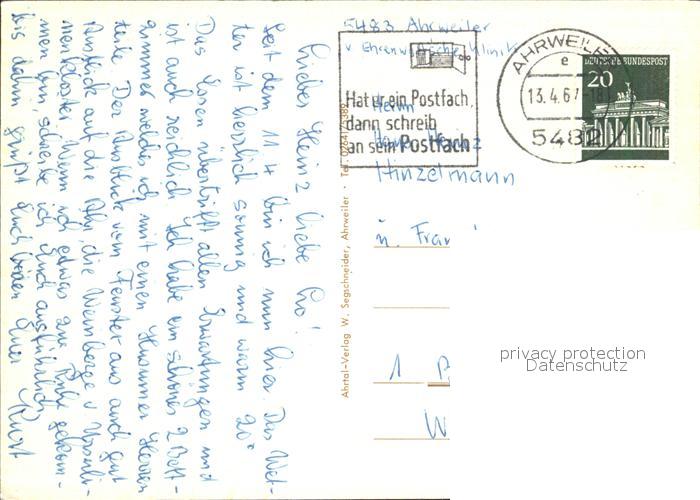 5483 Ahrweiler
v. Ehrenwall'sche Klinik
Hat er ein Postfach,
dann schreib
an sein Postfach
AHRWEILER
e
13.4.67
5482
DEUTSCHE BUNDESPOST
20
Herrn
Hinzelmann
u. Frau
1
W
Ahrtal-Verlag W. Segschneider, Ahrweiler • Tel. 02641/5389
privacy protection
Datenschutz
Lieber Heinz liebe
Seit dem 11.4. bin ich nun hier. Das Wet-
ter ist herrlich sonnig und warm 20°
Das Essen übertrifft allen Erwartungen und
ist auch reichlich. Ich habe ein schönes 2 Bett-
zimmer welches ich mit einem Herrn
teile. Der Ausblick vom Fenster aus auch gut
Ausblick auf die Ahr, die Weinberge u. Ursuli-
nenkloster. Wenn ich etwas zur Ruhe gekom-
men bin schreibe ich Euch ausführlich,
bis dahin grüßt Euch beiden Euer Kurt